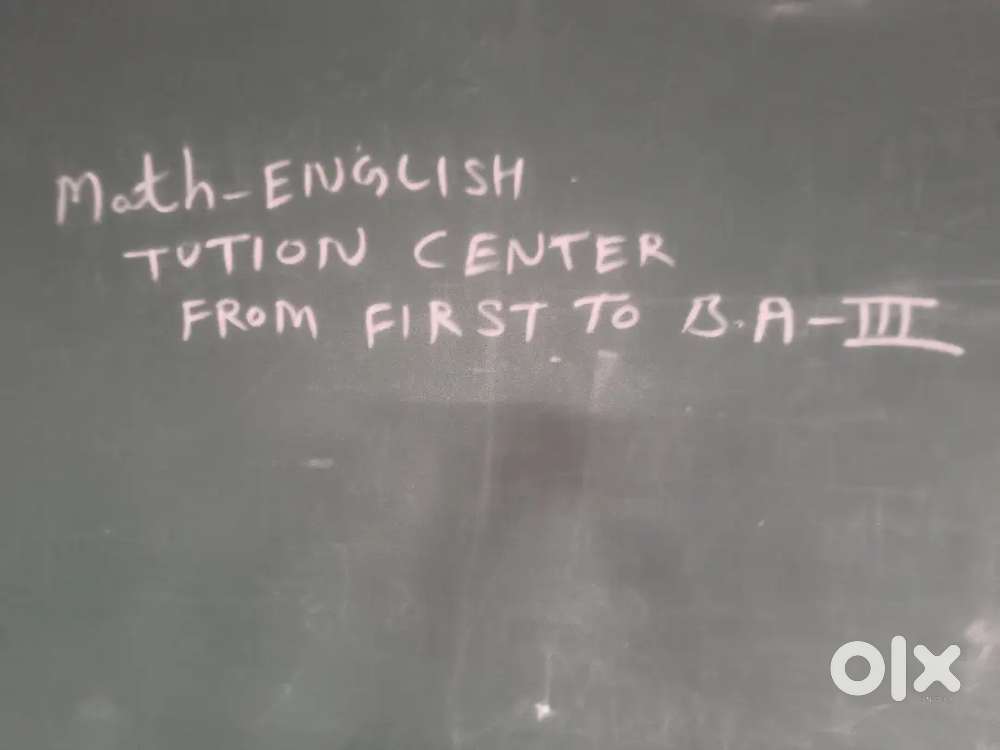 Math-ENGLISH
TUTION CENTER
FROM FIRST TO B.A-III
olx